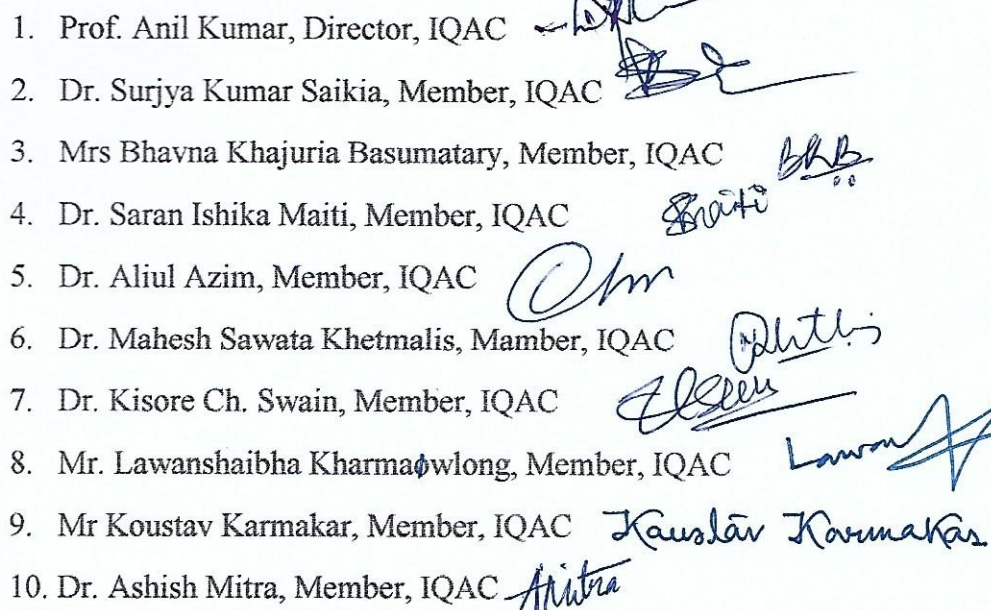 1. Prof. Anil Kumar, Director, IQAC
2. Dr. Surjya Kumar Saikia, Member, IQAC
3. Mrs Bhavna Khajuria Basumatary, Member, IQAC BKB
4. Dr. Saran Ishika Maiti, Member, IQAC SMaiti
5. Dr. Aliul Azim, Member, IQAC
6. Dr. Mahesh Sawata Khetmalis, Mamber, IQAC
7. Dr. Kisore Ch. Swain, Member, IQAC
8. Mr. Lawanshaibha Kharmaowlong, Member, IQAC Lawan
9. Mr Koustav Karmakar, Member, IQAC Koustav Karmakar
10. Dr. Ashish Mitra, Member, IQAC AMitra